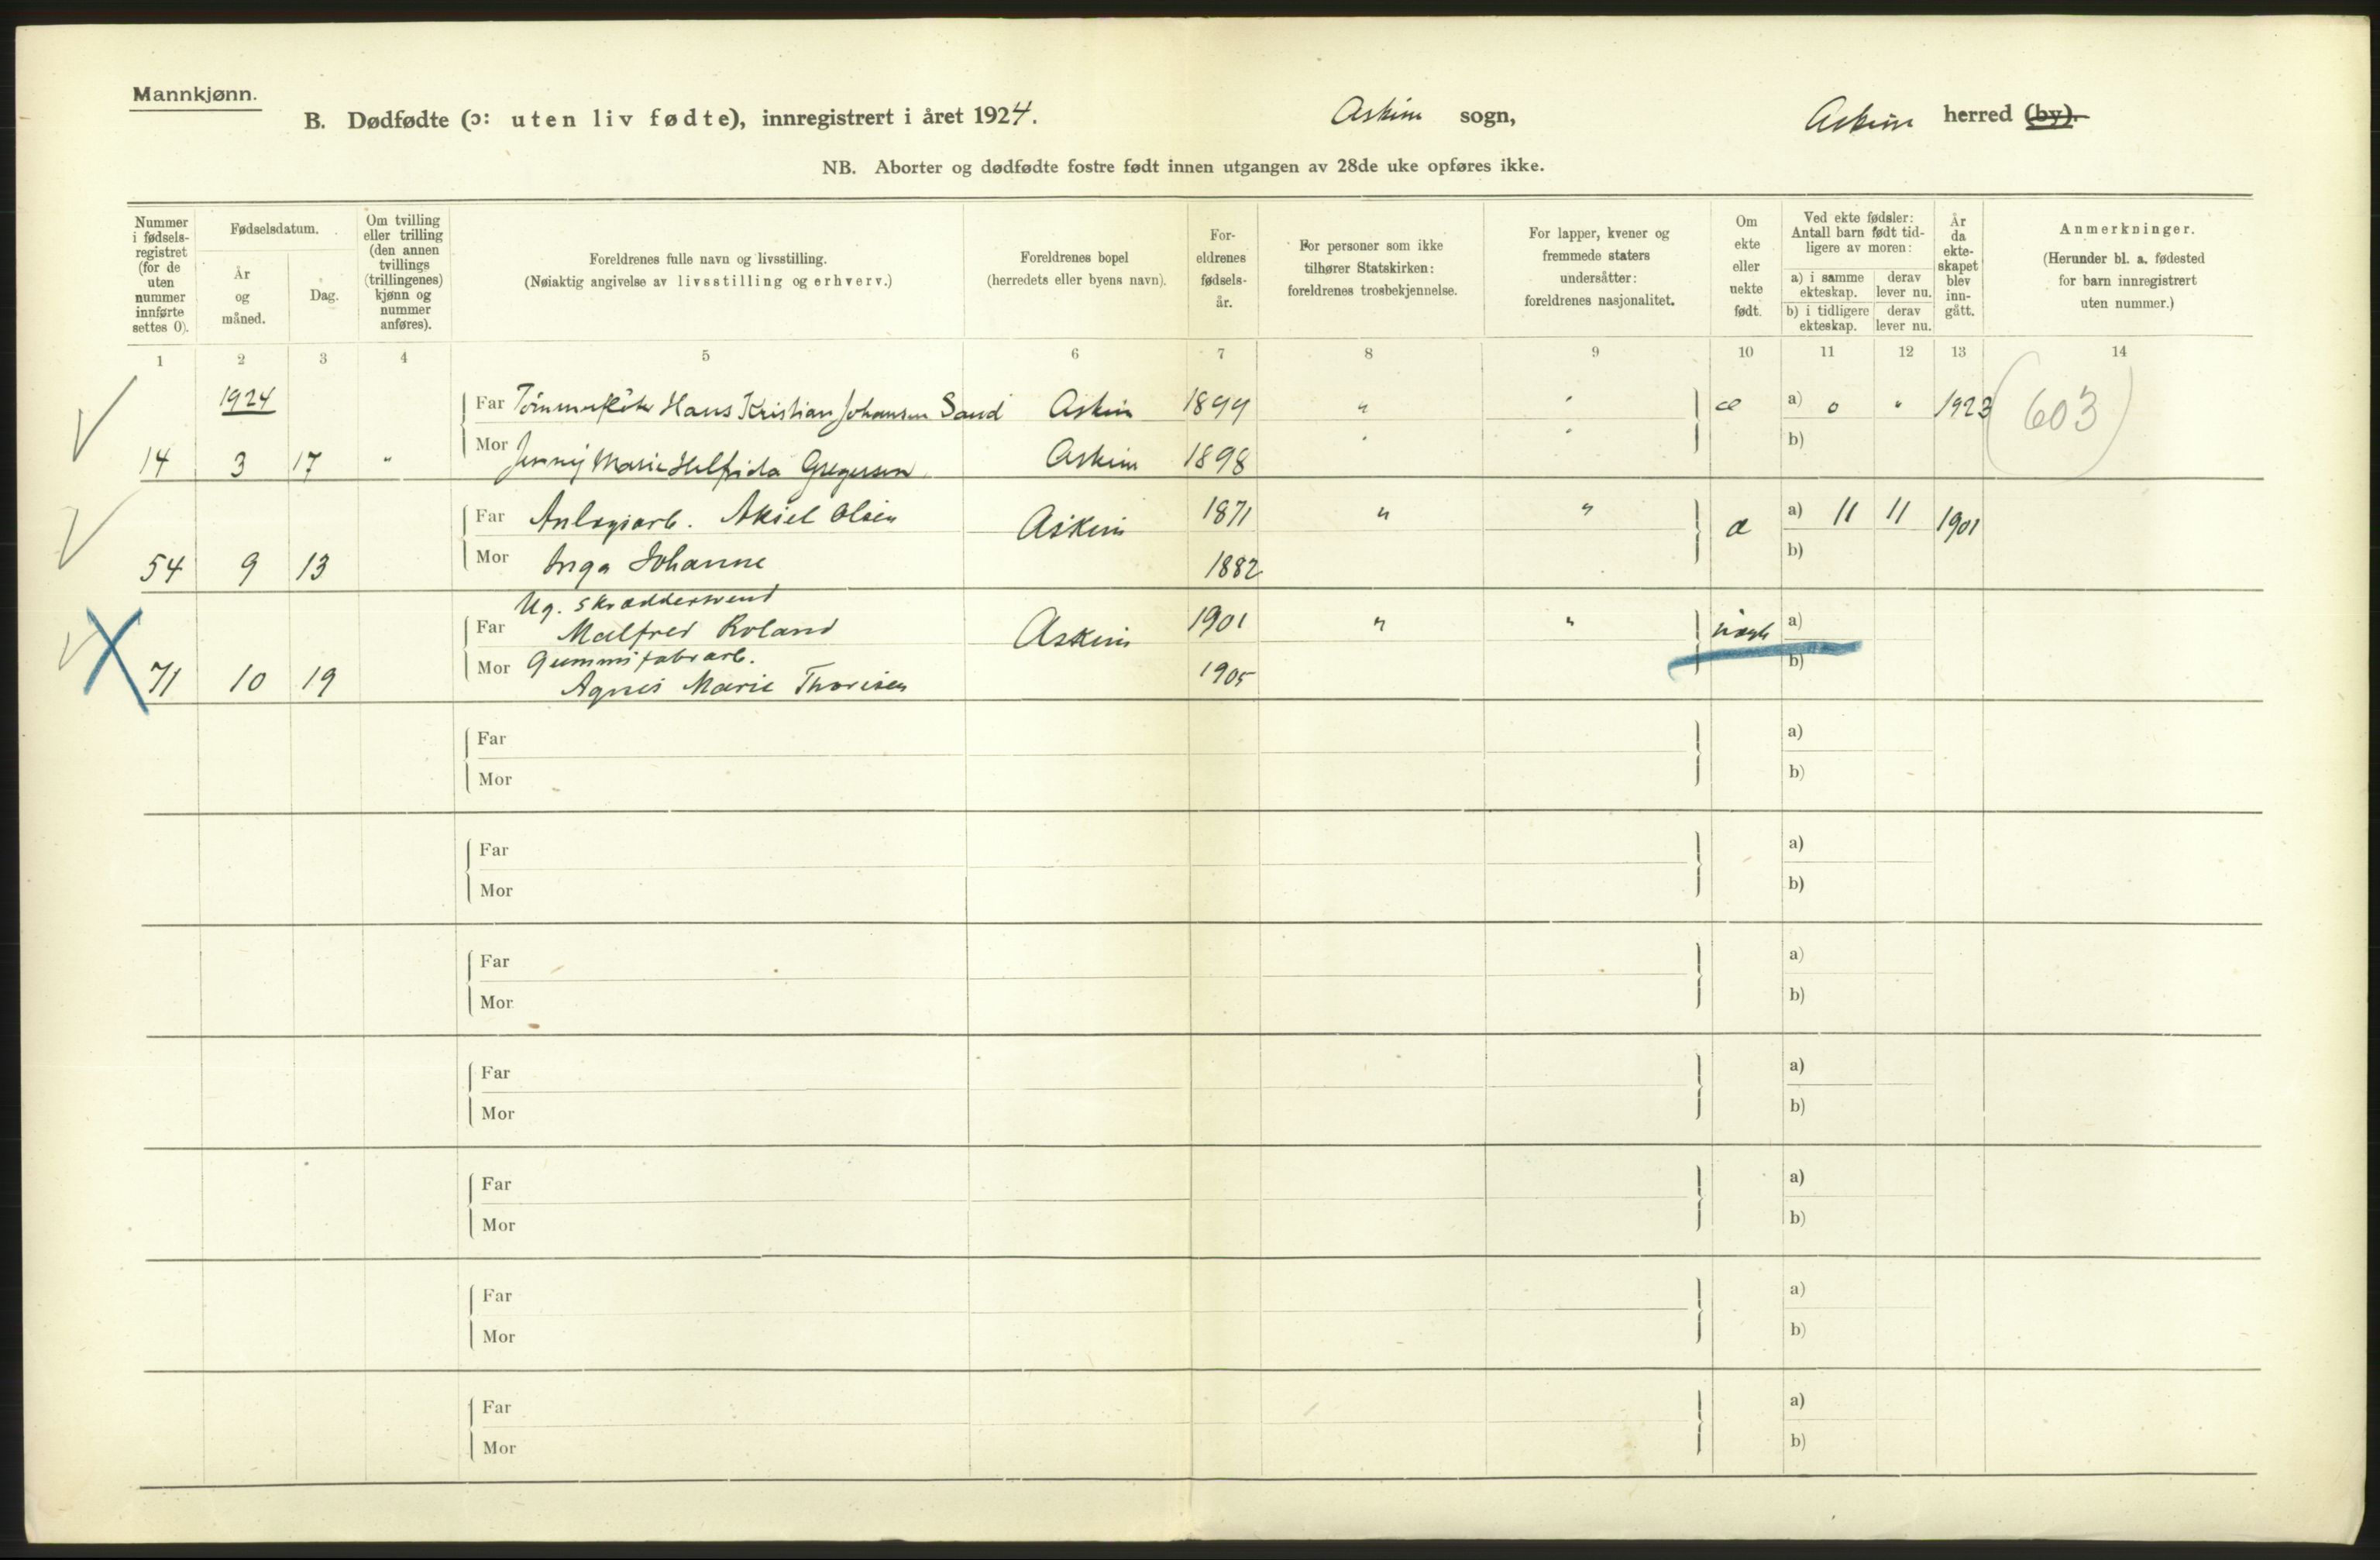 Mannkjønn.
B. Dødfødte (ɔ: uten liv fødte), innregistrert i året 1924. Askim sogn, Askim herred (by).
NB. Aborter og dødfødte fostre født innen utgangen av 28de uke opføres ikke.
Nummer i fødsels-registret (for de uten nummer innførte settes 0).
Fødselsdatum.
År og måned.
Dag.
Om tvilling eller trilling (den annen tvillings (trillingenes) kjønn og nummer anføres).
Foreldrenes fulle navn og livsstilling.
(Nøiaktig angivelse av livsstilling og erhverv.)
Foreldrenes bopel
(herredets eller byens navn).
For-eldrenes fødsels-år.
For personer som ikke tilhører Statskirken: foreldrenes trosbekjennelse.
For lapper, kvener og fremmede staters undersåtter: foreldrenes nasjonalitet.
Om ekte eller uekte født.
Ved ekte fødsler: Antall barn født tid-ligere av moren:
a) i samme ekteskap. derav lever nu.
b) i tidligere ekteskap. derav lever nu.
År da ekte-skapet blev inn-gått.
Anmerkninger.
(Herunder bl. a. fødested for barn innregistrert uten nummer.)
1 2 3 4 5 6 7 8 9 10 11 12 13 14
1924
Far Hans Kristian Johansen Sand Askim 1899 " " æ a) 0 " 1923 (603)
14 3 17 " Mor Jenny Marie Helfrida Gregersen Askim 1898 " " b)
Far Anlegsarb. Aksel Olsen Askim 1871 " " æ a) 11 11 1901
54 9 13 Mor Inga Johanne 1882 b)
Ug. skræddersvend
Far Malfred Roland Askim 1901 " " uægte a)
Mor Gummifabrarb. b)
71 10 19 Agnes Marie Thorisen 1905
Far a)
Mor b)
Far a)
Mor b)
Far a)
Mor b)
Far a)
Mor b)
Far a)
Mor b)
Far a)
Mor b)
Far a)
Mor b)